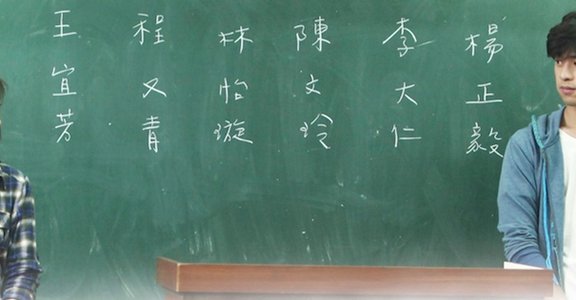 楊正毅
李大仁
陳文玲
林怡璇
程又青
王宜芳